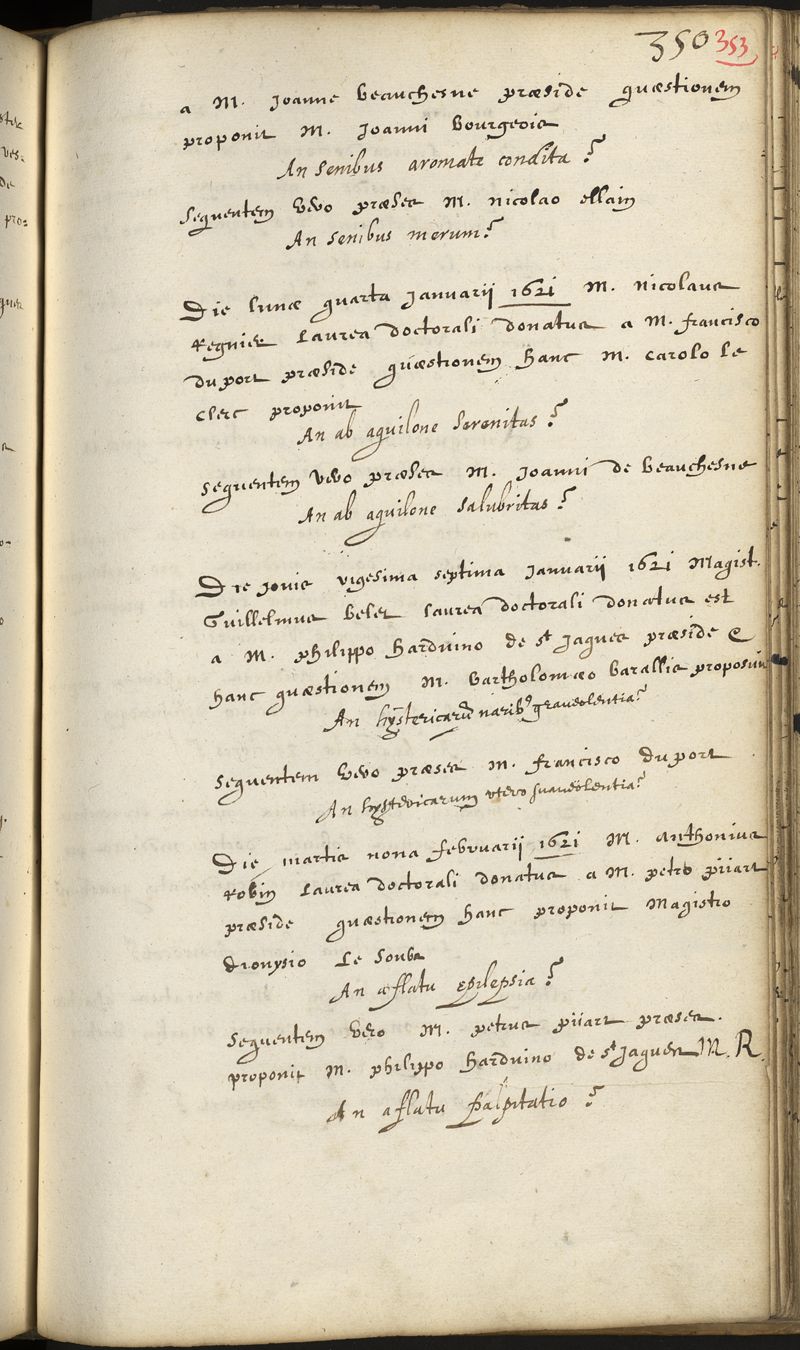 350 353
a M. Joanne Beauchesne præside quæstionem
proponit M. Joanni Bourgeois
An senibus aromate condita?
Sequentem vero præses M. Nicolao Ellain
An senibus merum?
Die lunæ quarta Januarii 1621 M. Nicolaus
Regnier laurea doctorali donatus a M. Francisco
du port præside quæstionem hanc M. Carolo le
Clerc proponit
An ab aquilone serenitas?
Sequentem vero præses M. Joanni de Beauchesne
An ab aquilone salubritas?
Die Jovis vigesima septima Januarii 1621 Magist.
Guillelmus Belet laurea doctorali donatus est
a M. Philippo Harduino de st Jaques præside &
hanc quæstionem M. Bartholomæo Barallis proposuit
An hystericarū narib9 graveolentia?
Sequentem vero præses M. Francisco du port
An hystericarum utero suaveolentia?
Die martis nona Februarii 1621 M. Anthonius
Robin laurea doctorali donatus a M. Petro piiart
præside quæstionem hanc proponit Magistro
Dionysio le Soubs
An a flatu epilepsia?
Sequentem vero M. Petrus piiart præses.
proponit M. Philippo Harduino de st Jaques M. R.
An a flatu palpitatio?